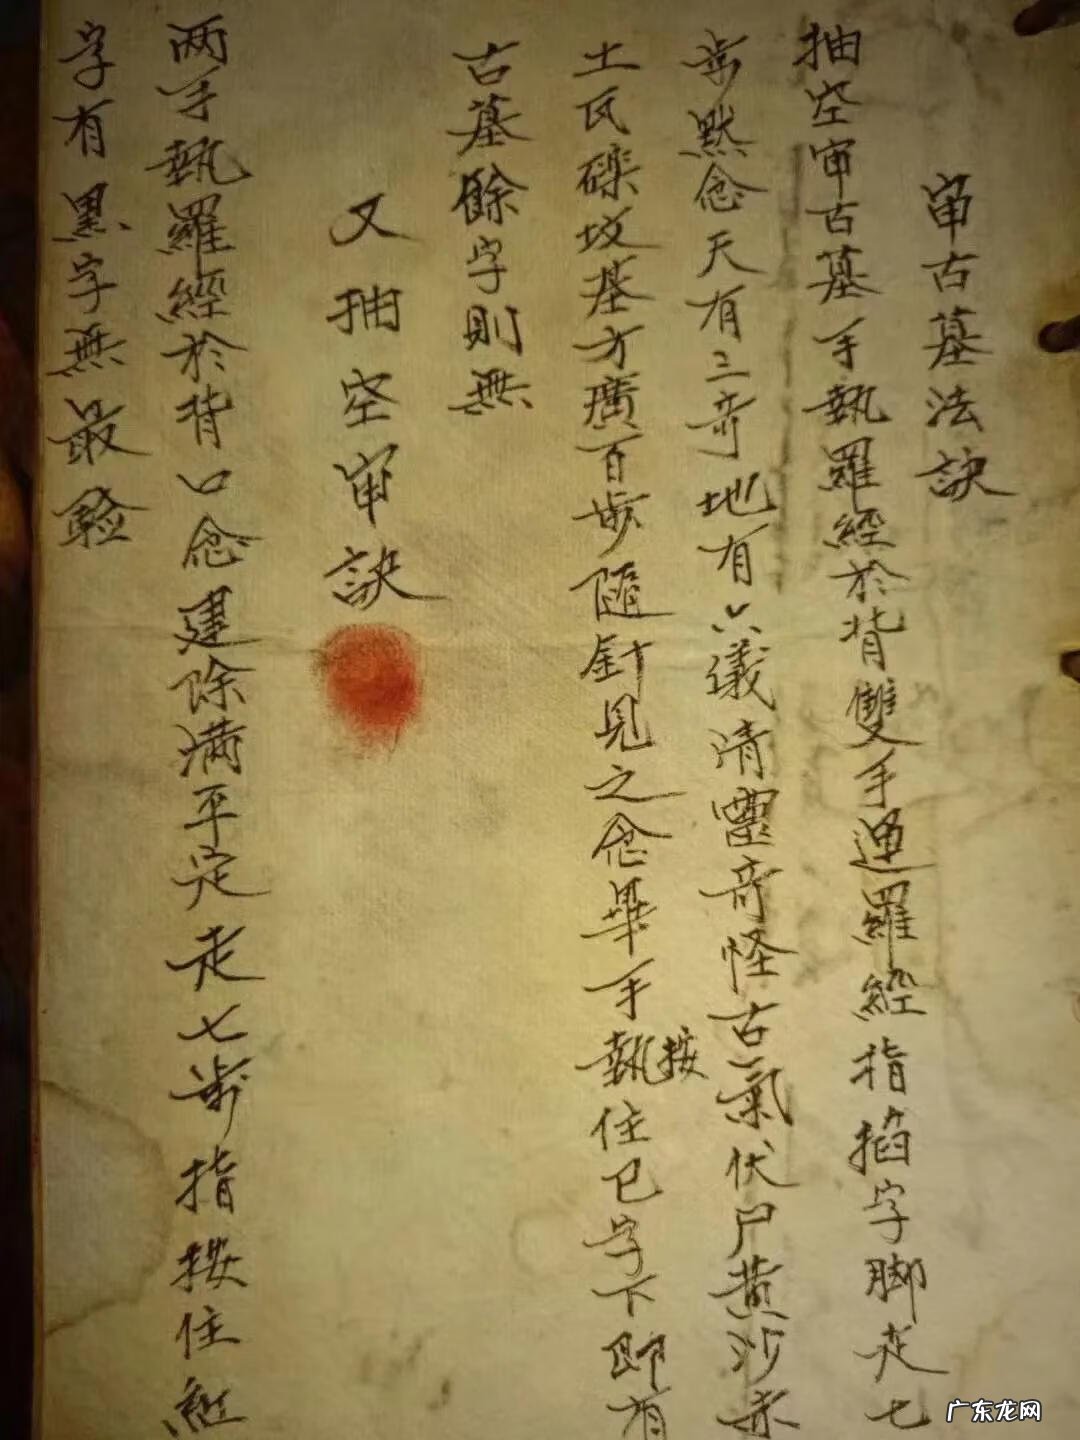 审古墓法訣
抽空审古墓手執羅經於背雙手運羅經指掐字脚走七
步默念天有三奇地有六議清靈奇怪古氣伏尸黄沙赤
土瓦礫坟墓方廣百步隨針見之念畢手執按住巳字下即有
古墓餘字則無
又抽空审訣
两手執羅經於背口念建除满平定走七步指按住紅
字有黑字無最验
广东龙网